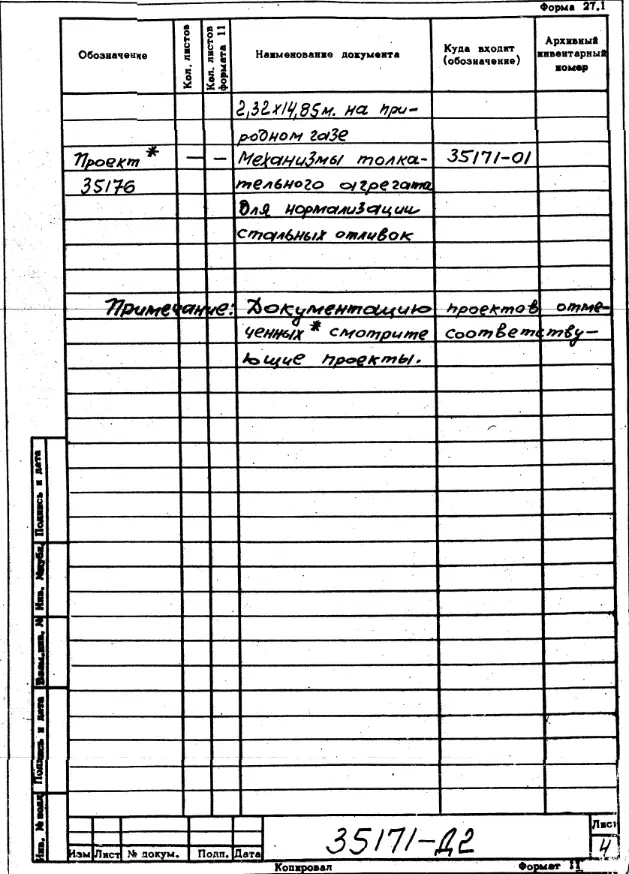 Форма 27.1
Обозначение Кол. листов Кол. листов формата 11 Наименование документа Куда входит (обозначение) Архивный инвентарный номер
2,32х14,85м. на при-
родном газе
Проект * — — Механизмы толка- 35171-01
35176 тельного агрегата
для нормализации
стальных отливок
Примечание: Документацию проектов отме-
ченных * смотрите соответству-
ющие проекты.
Подпись и дата
Инв. №дубл.
Взам.инв. №
Подпись и дата
Инв. № подл
35171-Д2
Лист
4
Изм Лист № докум. Подп. Дата
Копировал Формат 11